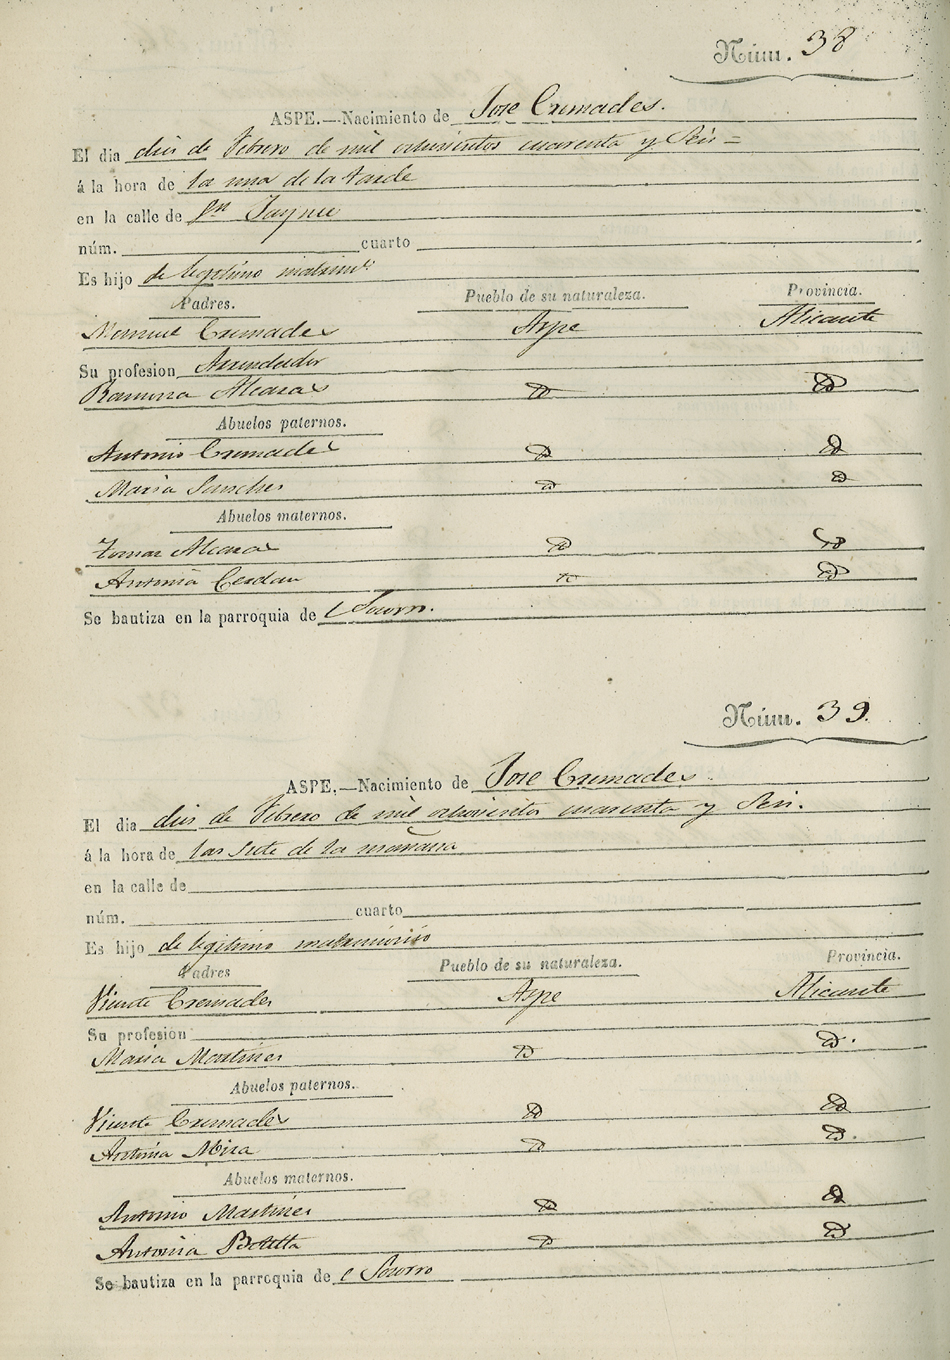 Núm. 38
ASPE.—Nacimiento de Jose Cremades.
El dia dies de Febrero de mil ochocientos cuarenta y Seis =
á la hora de la una de la tarde
en la calle de Sn Jayme
núm. cuarto
Es hijo de legitimo matrimo.
Padres. Pueblo de su naturaleza. Provincia.
Manuel Cremades Aspe Alicante
Su profesion Arrendador
Ramona Alcaras Id Id
Abuelos paternos.
Antonio Cremades Id Id
Maria Sanches Id Id
Abuelos maternos.
Tomas Alcaras Id Id
Antonia Cerdan Id Id
Se bautiza en la parroquia de l Socorro.
Núm. 39.
ASPE.—Nacimiento de Jose Cremades.
El dia dies de Febrero de mil ochocientos cuarenta y Seis.
á la hora de las siete de la mañana
en la calle de
núm. cuarto
Es hijo de legitimo matrimonio
Padres Pueblo de su naturaleza. Provincia.
Vicente Cremades Aspe Alicante
Su profesion
Maria Martines Id Id.
Abuelos paternos.
Vicente Cremades Id Id
Antonia Mira Id Id.
Abuelos maternos.
Antonio Martines Id Id
Antonia Botella Id Id
Se bautiza en la parroquia de l Socorro